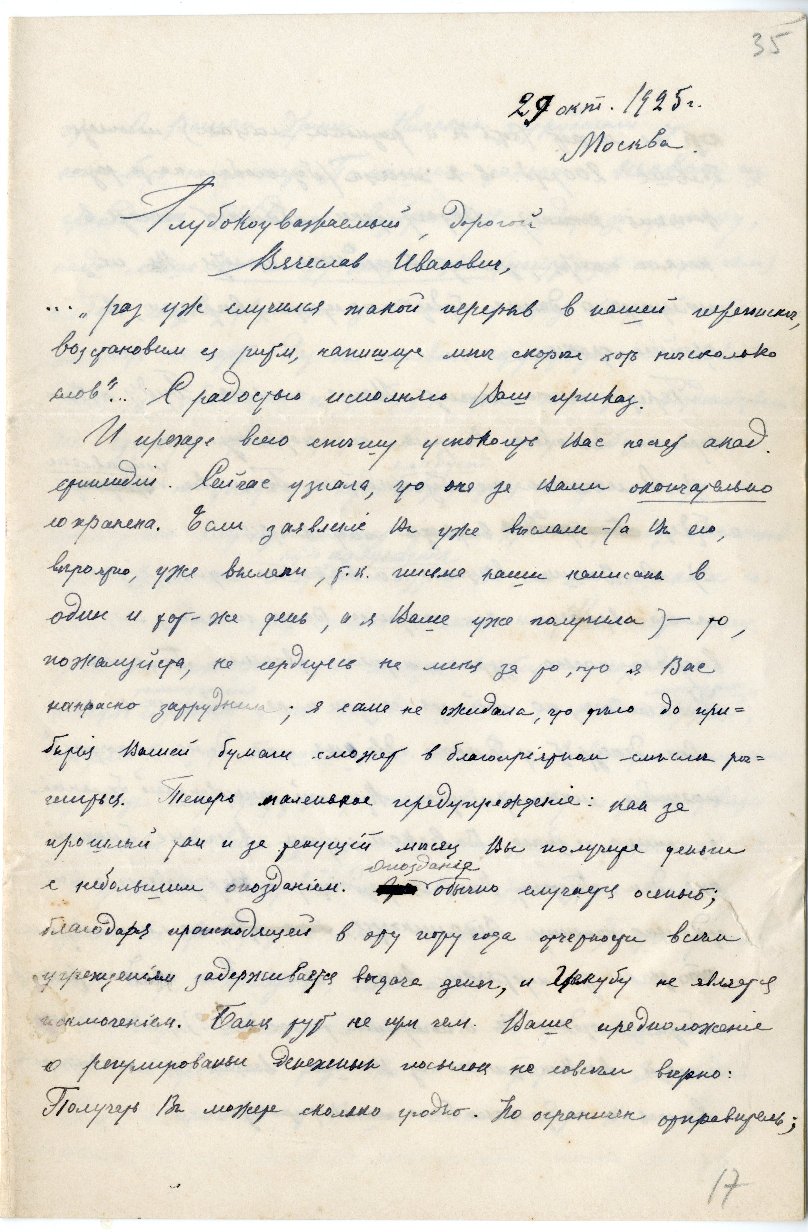 35
29 окт. 1925 г.
Москва.
Глубокоуважаемый, дорогой
Вячеслав Иванович,
... „раз уж случился такой перерыв в нашей переписке,
возстановим ея ритм, напишите мне скорее хоть несколько
слов"... С радостью исполняю Ваш приказ.
И прежде всего спешу успокоить Вас насчет акад.
стипендіи. Сейчас узнала, что она за Вами окончательно
сохранена. Если заявленіе Вы уже выслали – (а Вы его,
вероятно, уже выслали, т.к. письма наши написаны в
один и тот-же день, и я Ваше уже получила) – то,
пожалуйста, не сердитесь на меня за то, что я Вас
напрасно затруднила; я сама не ожидала, что дело до при=
бытія Вашей бумаги сможет в благопріятном смысле ре=
шиться. Теперь маленькое предупрежденіе: как за
прошлый так и за текущій месяц Вы получите деньги
с небольшим опозданіем. опозданіе обычно случается осенью;
благодаря происходящей в эту пору года отчетности всем
учрежденіям задерживается выдача денег, и Цекубу не является
исключеніем. Банк тут не при чем. Ваше предположеніе
о регулированьи денежных посылок не совсем верно:
Получать Вы можете сколько угодно. Но ограничен отправитель;
17